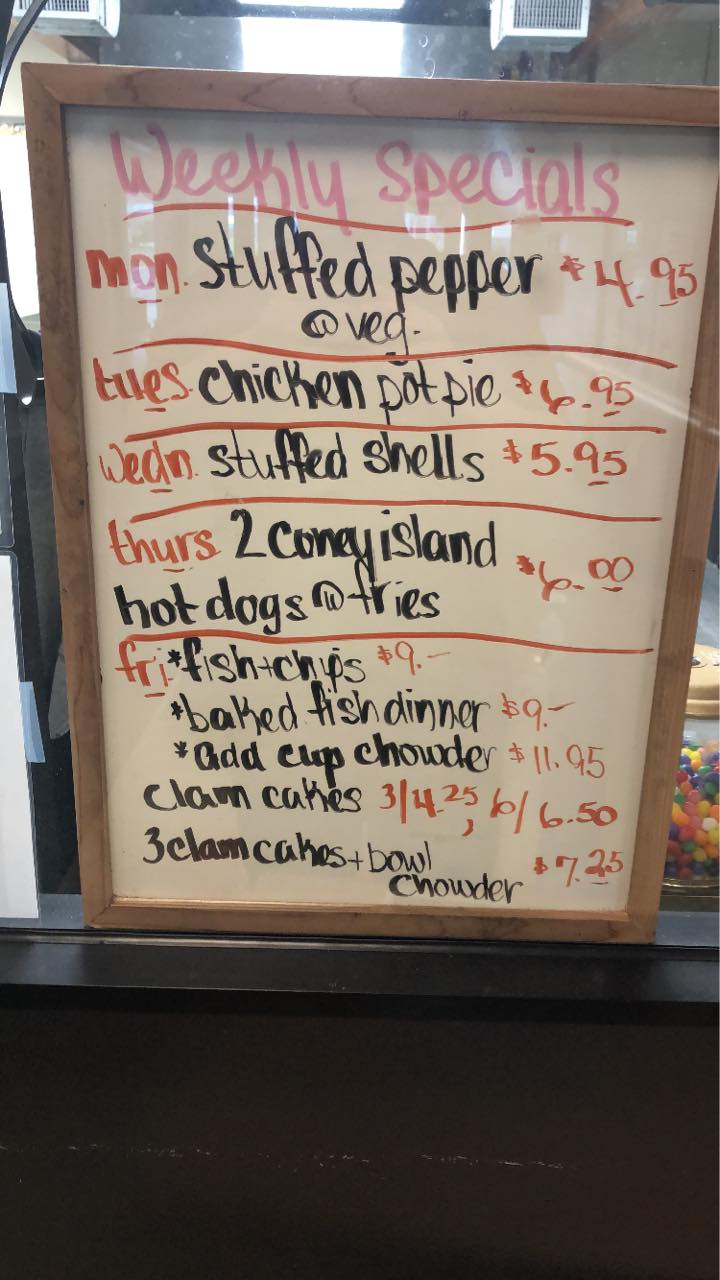 Weekly Specials
mon. stuffed pepper $4.95
ⓦ veg.
tues. chicken pot pie $6.95
wedn. stuffed shells $5.95
thurs 2 coney island
hot dogs ⓦ fries $6.00
fri. *fish+chips $9.-
*baked fish dinner $9.-
*add cup chowder $11.95
clam cakes 3/4.25, 6/6.50
3 clam cakes + bowl
chowder $7.25